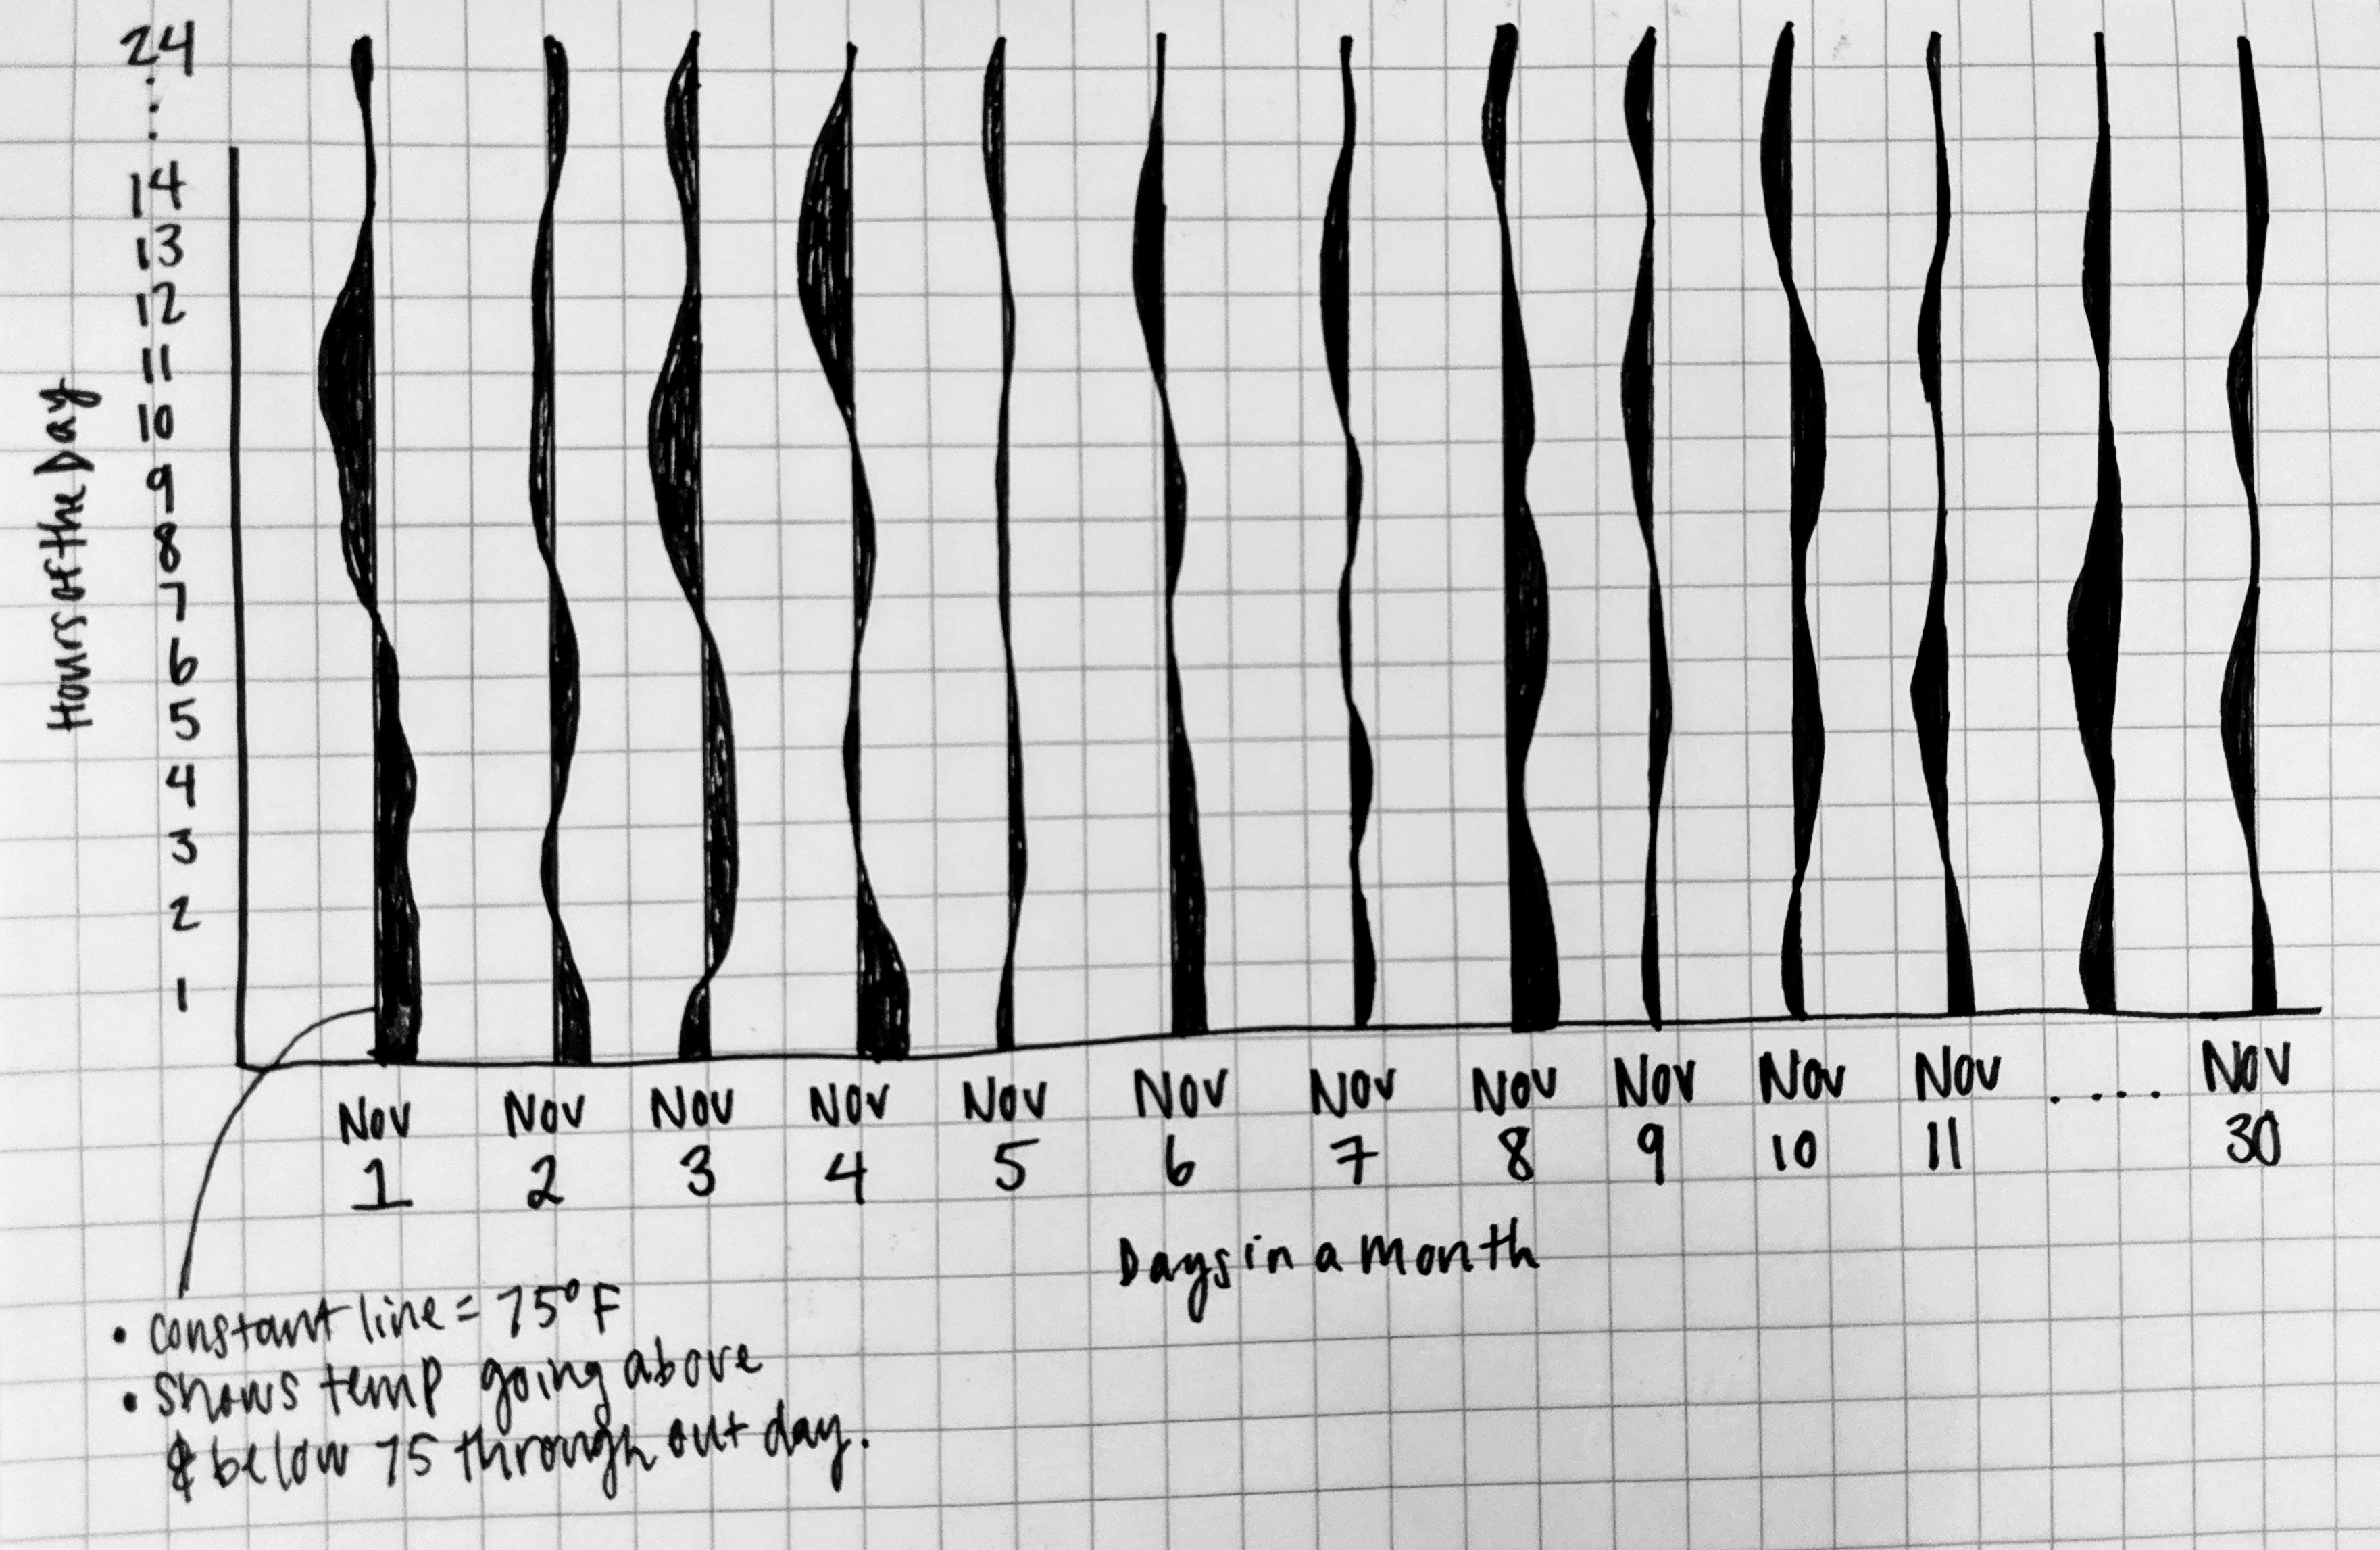 24
:
14
13
12
11
10
9
8
7
6
5
4
3
2
1
Hours of the Day
Nov Nov Nov Nov Nov Nov Nov Nov Nov Nov Nov .... Nov
1 2 3 4 5 6 7 8 9 10 11 30
Days in a month
• constant line = 75°F
• shows temp going above
& below 75 through out day.